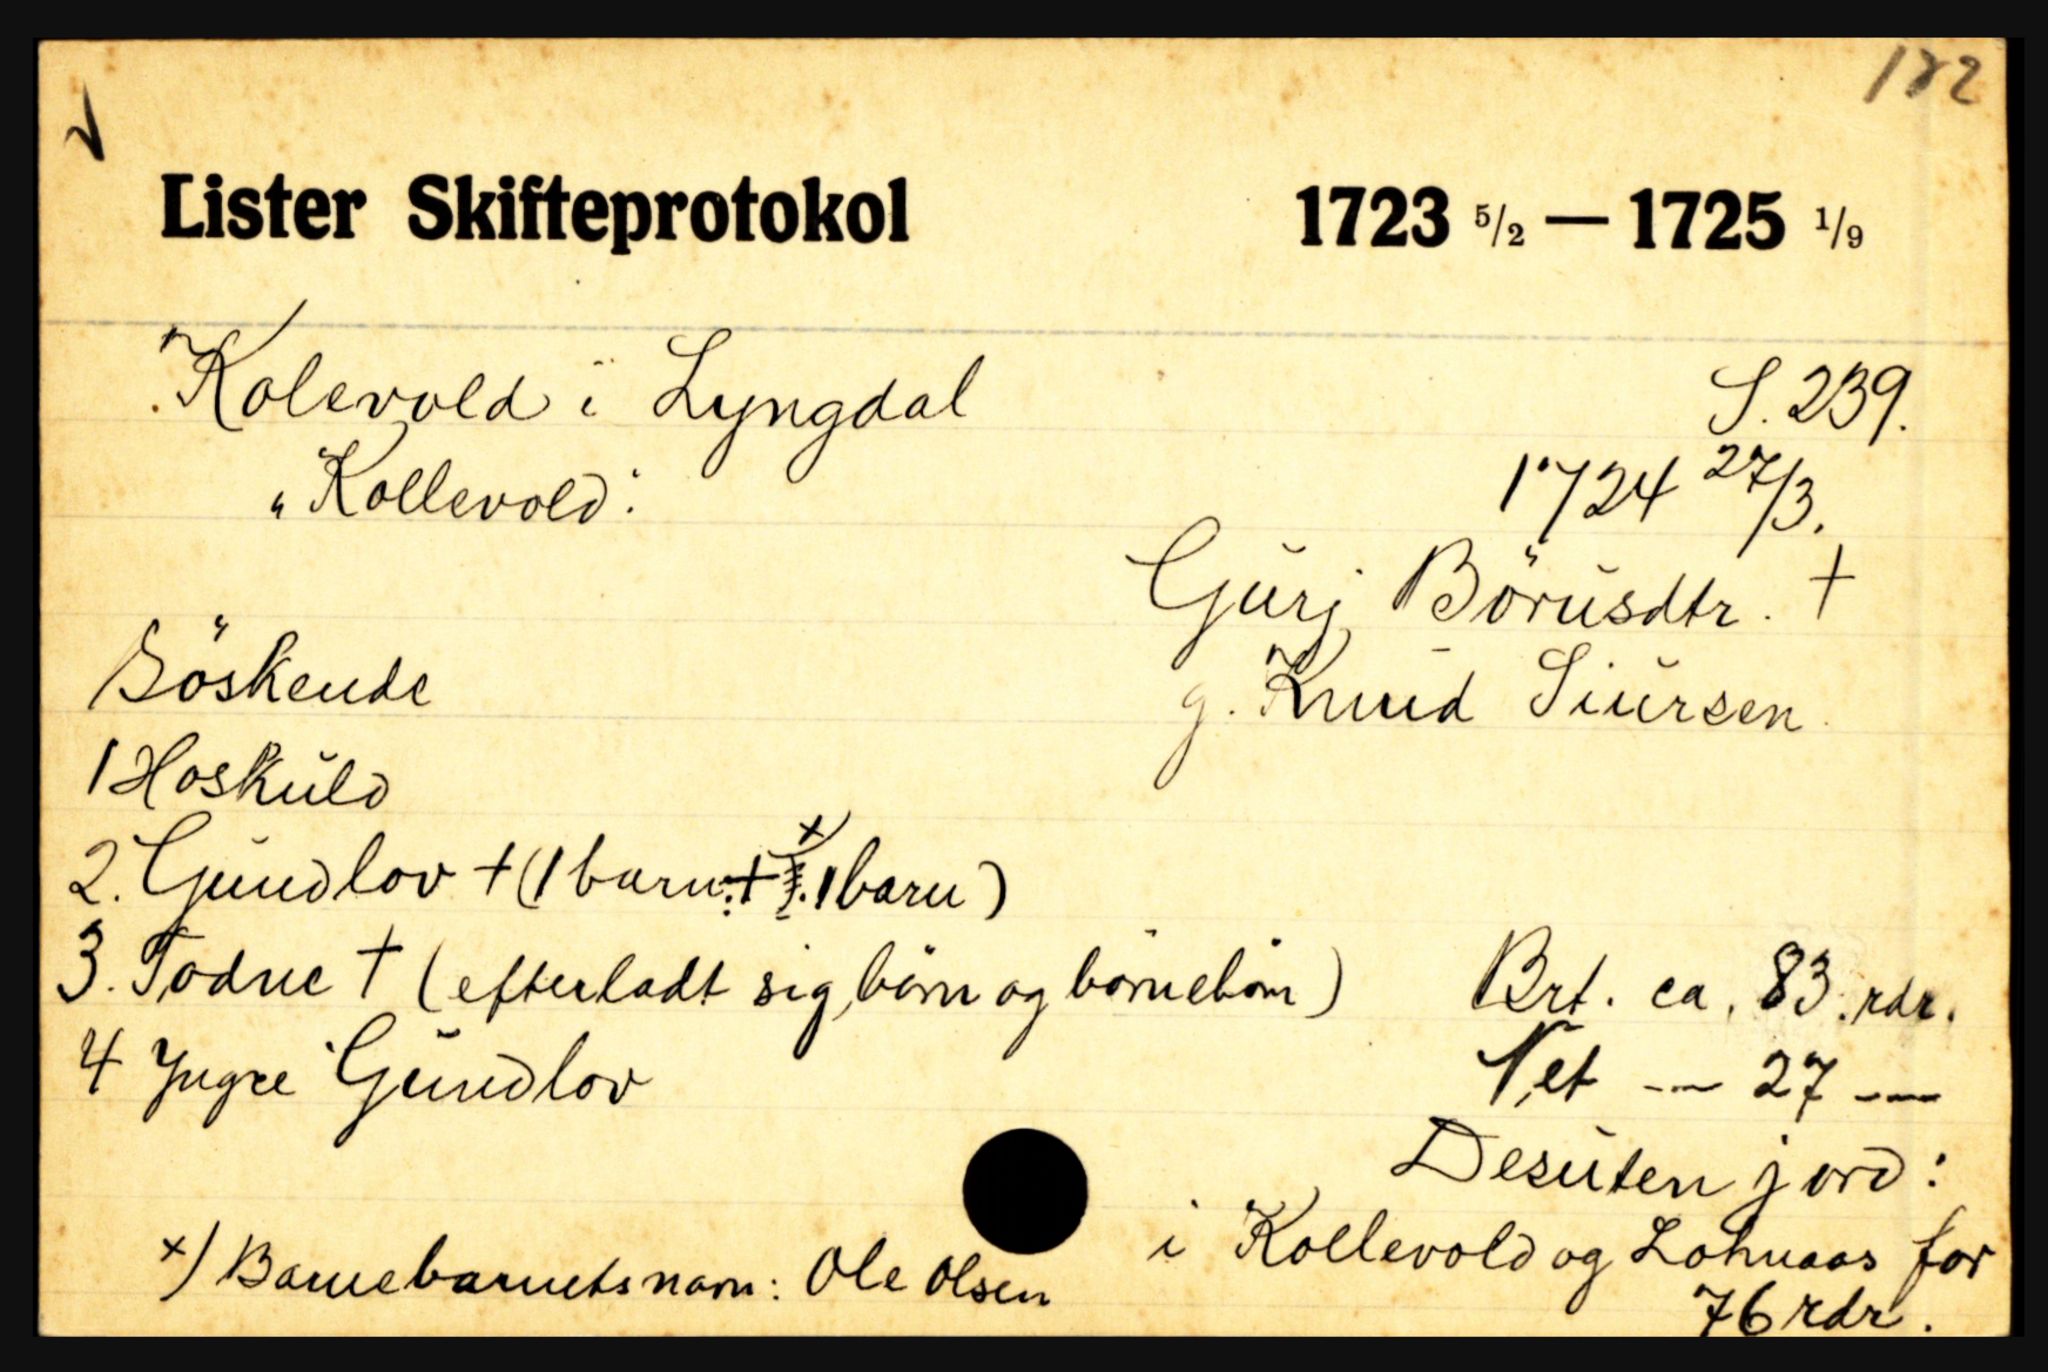 182
Lister Skifteprotokol 1723 5/2 — 1725 1/9
Kolevold i Lyngdal S. 239.
"Kollevold: 1724 27/3.
Gurj Börusdtr. †
Söskende g. Knud Siursen
1 Hoskuld
2. Gundlov † (1 barn: † 1 barn)
3. Todne † (efterladt sig, börn og börnebörn) Brt. ca. 83 rdr.
4 Yngre Gundlov Net — 27 —
Desuten jord:
x) Barnebarnets navn: Ole Olsen i Kollevold og Lohnaas for
76 rdr.